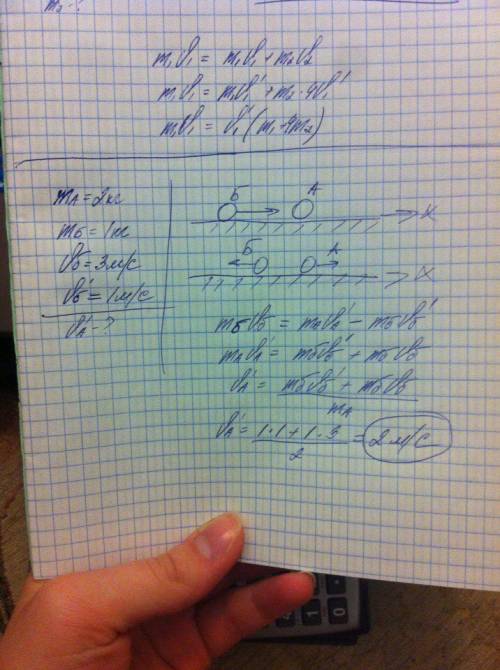 m₂ - ?
m₁ϑ₁ = m₁ϑ₁ + m₂ϑ₂
m₁ϑ₁ = m₁ϑ₁' + m₂·4ϑ₁'
m₁ϑ₁ = ϑ₁'(m₁+4m₂)
mА = 2кг
mБ = 1кг
ϑБ = 3м/с
ϑБ' = 1м/с
ϑА' - ?
Б А
X
Б А
X
mБϑБ = mАϑА' - mБϑБ'
mАϑА' = mБϑБ' + mБϑБ
ϑА' = mБϑБ' + mБϑБ
mА
ϑА' = 1·1+1·3 = 2м/с
2
1
0